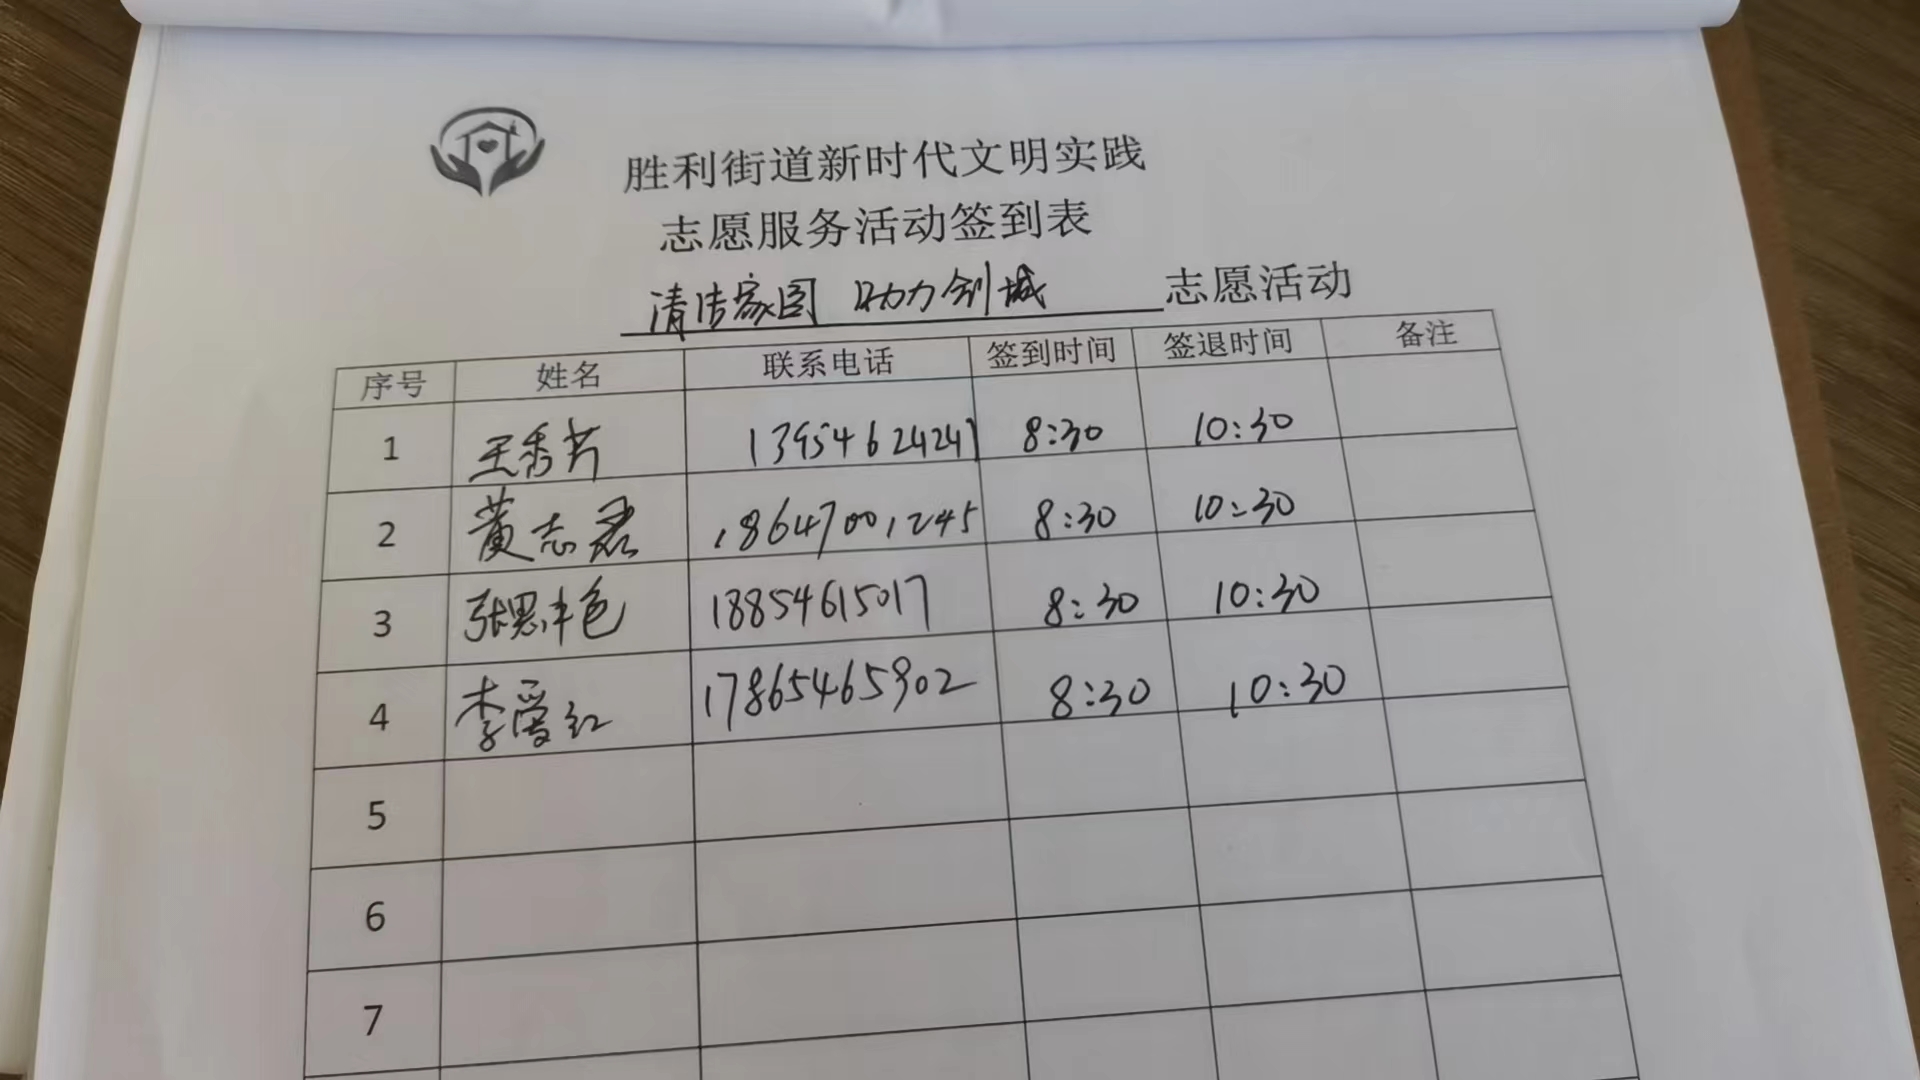 胜利街道新时代文明实践
志愿服务活动签到表
清洁家园 助力创城 志愿活动
序号 姓名 联系电话 签到时间 签退时间 备注
1 王秀芳 13954624247 8:30 10:30
2 黄志君 18647001245 8:30 10:30
3 张思 18854615017 8:30 10:30
4 李爱红 17865465902 8:30 10:30
5
6
7